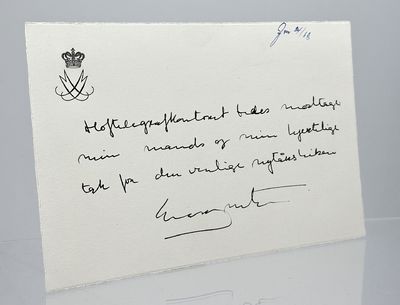 Jan 18
Hoftelegrafkontoret bedes modtage
min mands og min hjertelige
tak for den venlige nytårshilsen
Margrethe